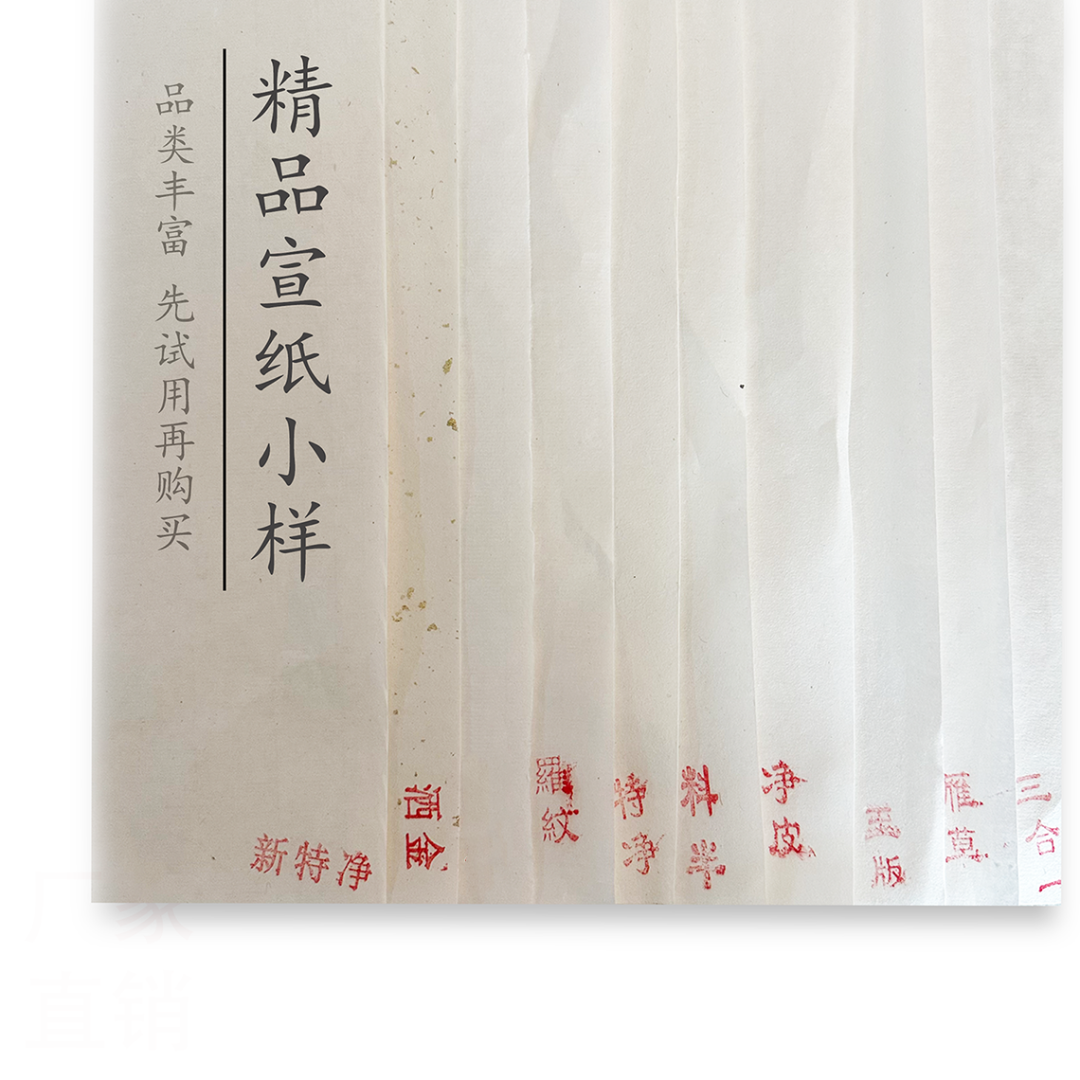 精品宣纸小样
品类丰富 先试用再购买
新特净
洒金
羅紋
特净
料半
净皮
玉版
雁莫
三合一
厂家
直销